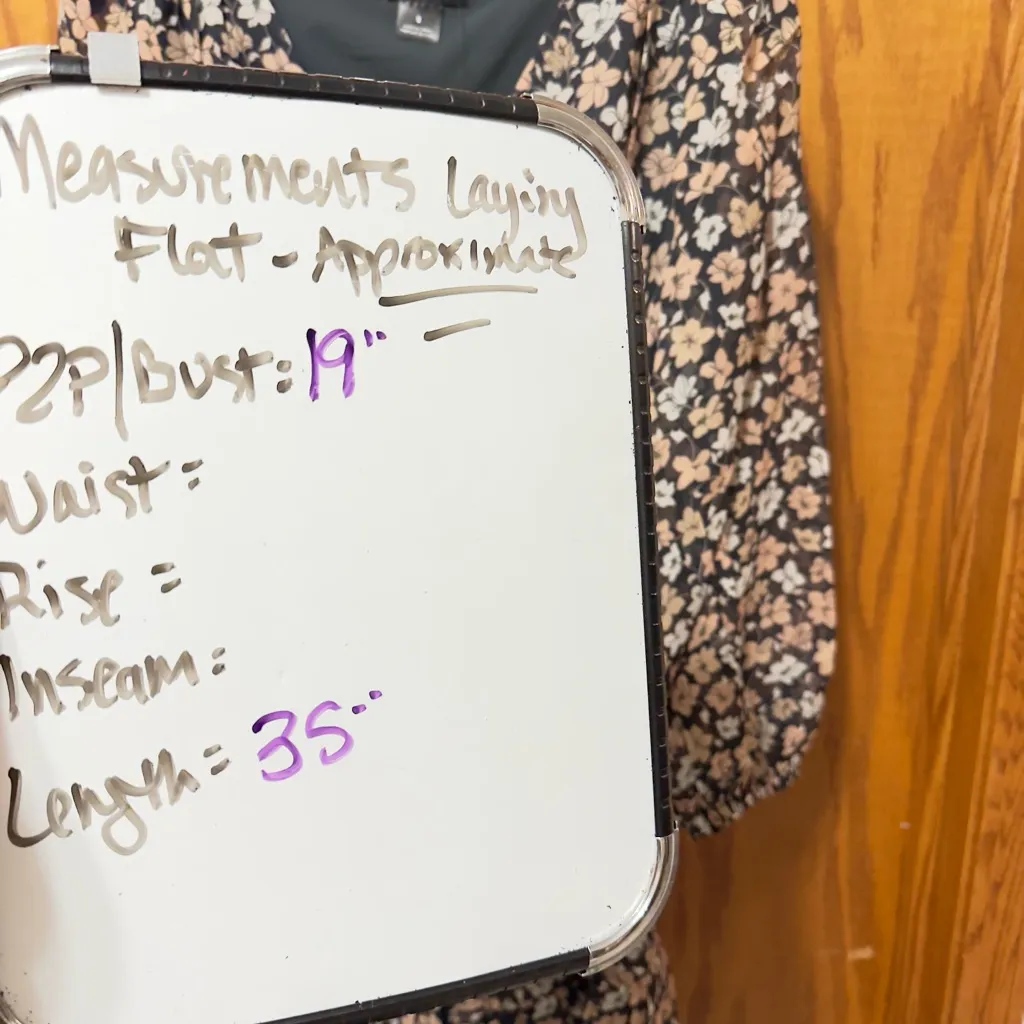 Measurements Laying
Flat - Approximate
P2P/Bust: 19"
Waist:
Rise:
Inseam:
Length: 35"